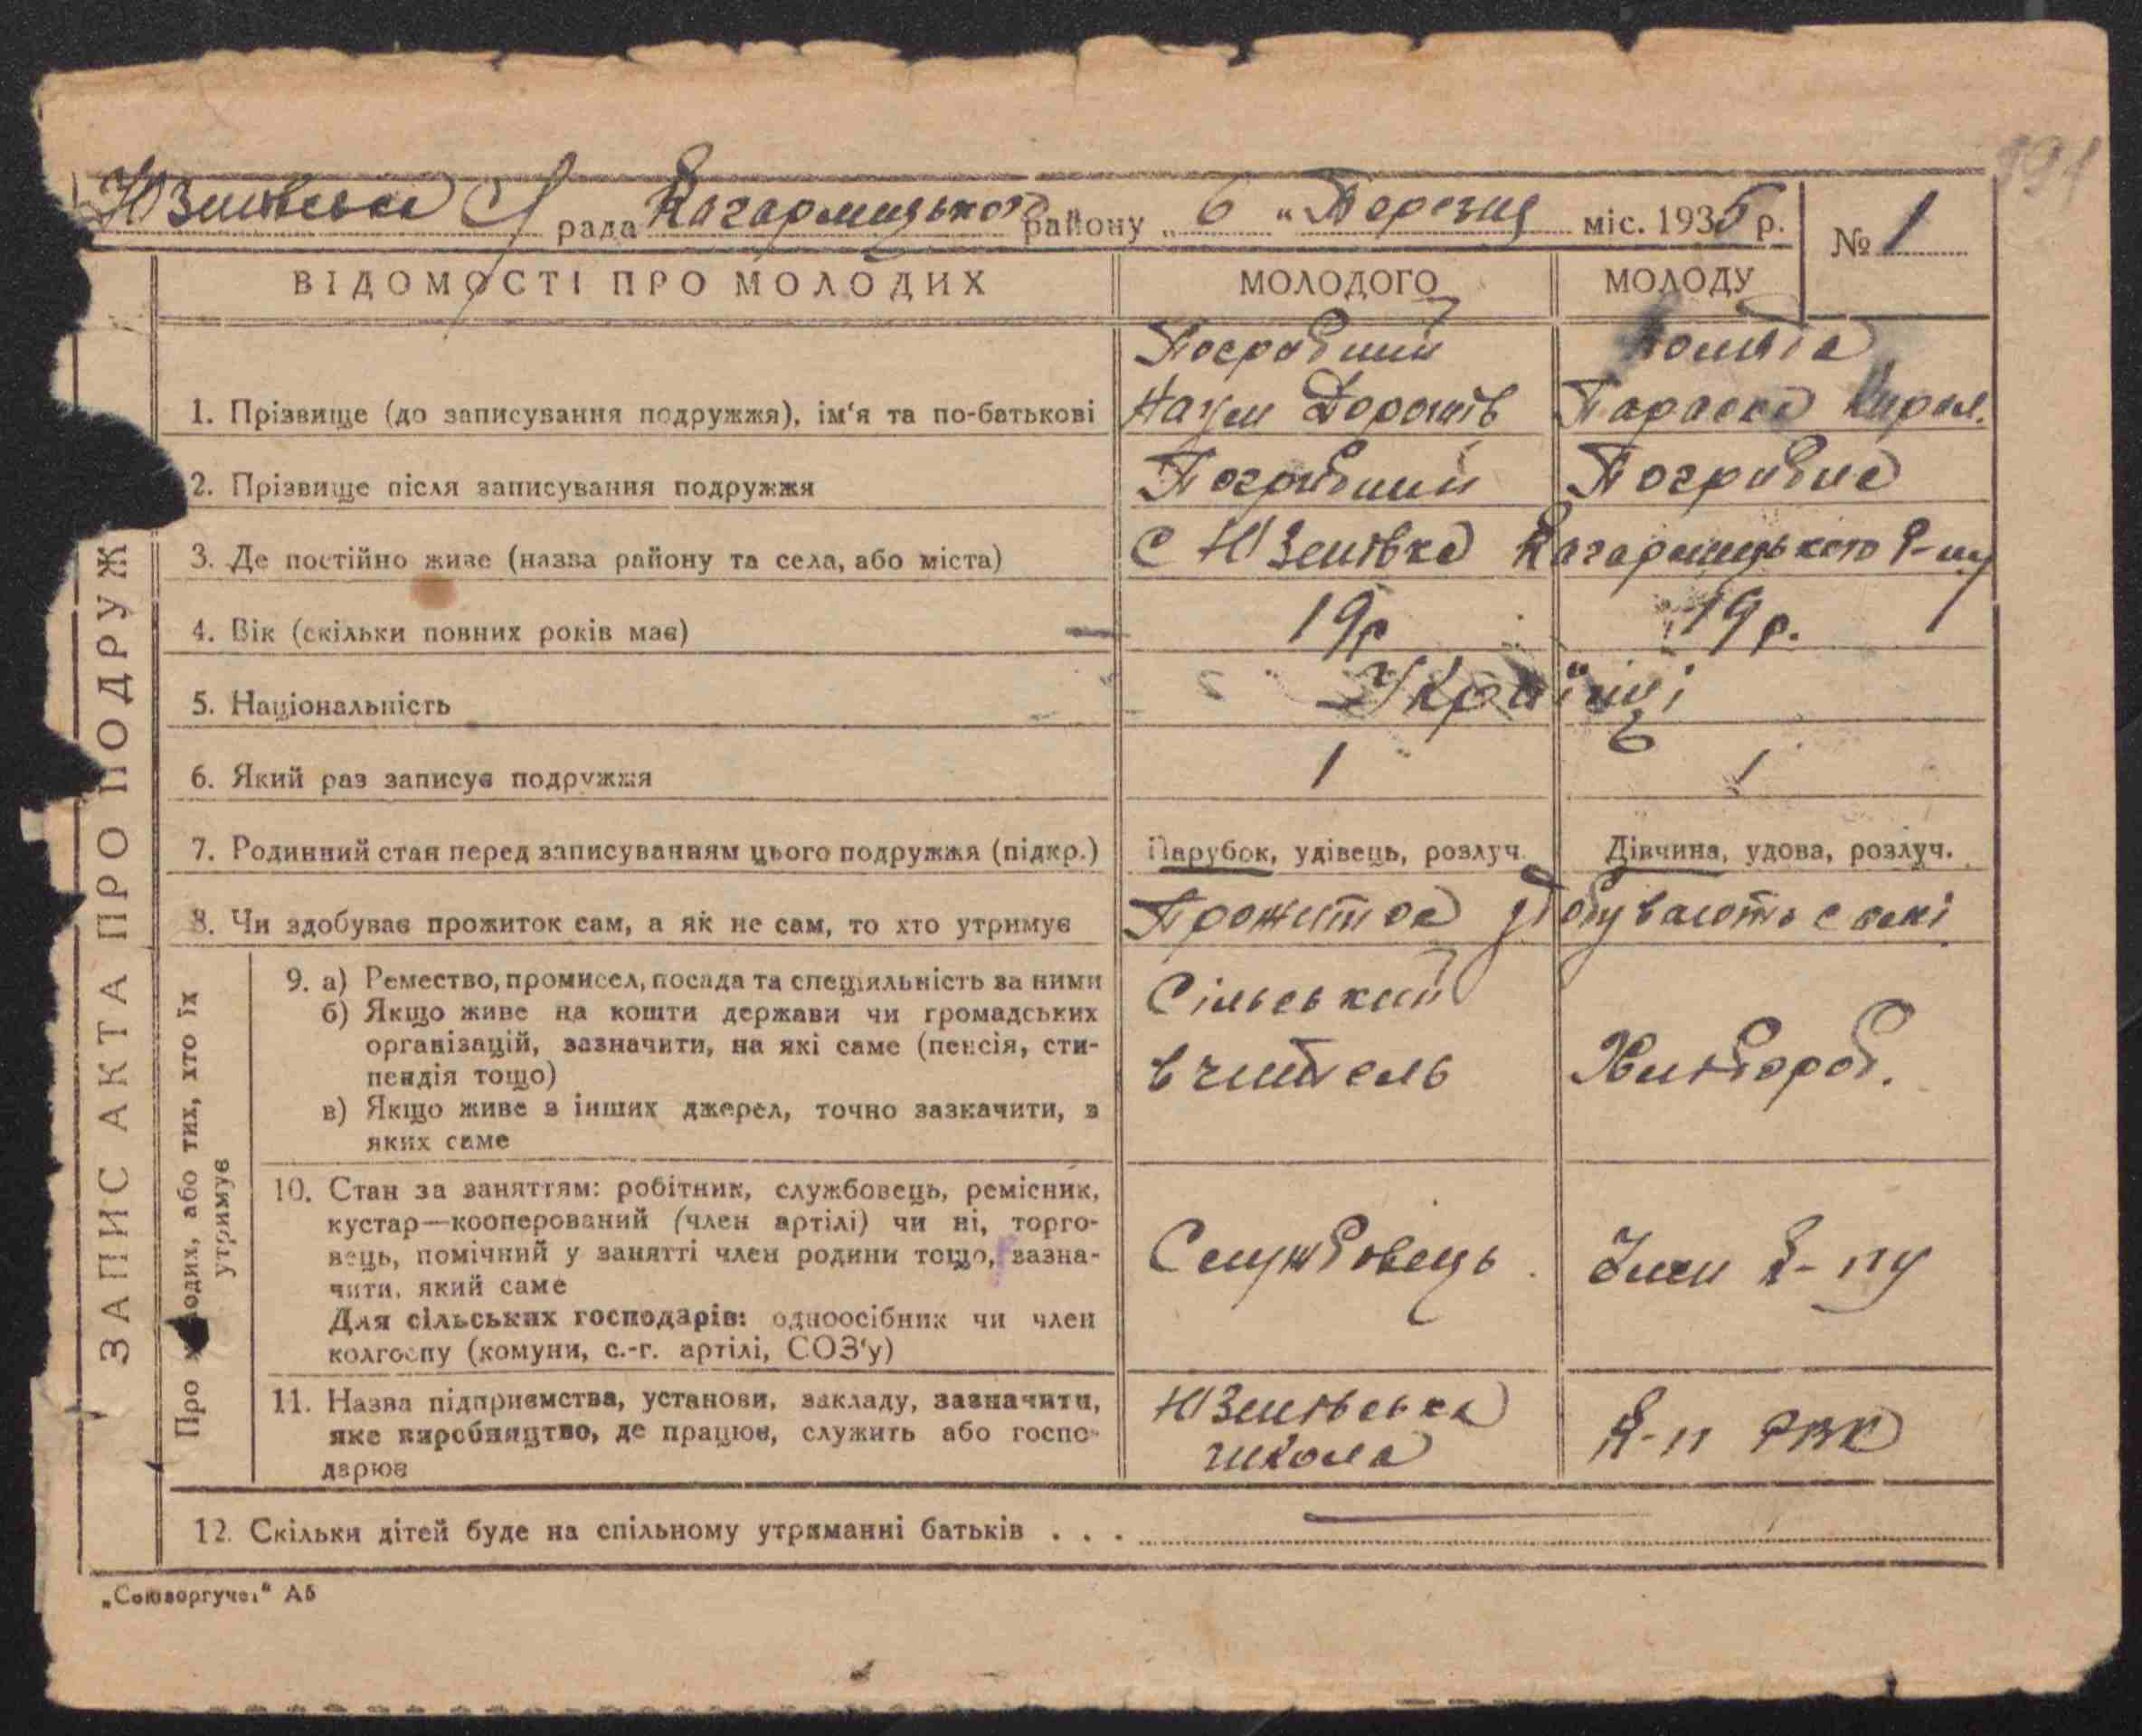 Юзипівська С/ рада Кагарлицького району „ 6 " Березня міс. 1935 р. № 1
ВІДОМОСТІ ПРО МОЛОДИХ МОЛОДОГО МОЛОДУ
1. Прізвище (до записування подружжя), ім‘я та по-батькові Погрібний Наум Дорошів Параска Кирил.
2. Прізвище після записування подружжя Погрібний Погрибна
3. Де постійно живе (назва району та села, або міста) С Юзипівка Кагарлицького Р-ну
4. Вік (скільки повних років має) 19р 19 р.
5. Національність Українці
6. Який раз записує подружжя 1 1
7. Родинний стан перед записуванням цього подружжя (підкр.) Парубок, удівець, розлуч. Дівчина, удова, розлуч.
8. Чи здобуває прожиток сам, а як не сам, то хто утримує Прожиток здобувають самі
9. а) Ремество, промисел, посада та спеціяльність за ними
б) Якщо живе на кошти держави чи громадських
організацій, зазначити, на які саме (пенсія, сти-
пендія тощо)
в) Якщо живе з інших джерел, точно зазначити, з
яких саме
Сільський
вчитель
Хлібороб.
10. Стан за заняттям: робітник, службовець, ремісник,
кустар—кооперований (член артілі) чи ні, торго-
вець, помічний у занятті член родини тощо, зазна-
чити, який саме
Для сільських господарів: одноосібник чи член
колгоспу (комуни, с.-г. артілі, СОЗ‘у)
Службовець
Член к-пу
11. Назва підприємства, установи, закладу, зазначити,
яке виробництво, де працює, служить або госпо-
дарює
Юзипівська
школа
К-п РВК
12. Скільки дітей буде на спільному утриманні батьків . . .
ЗАПИС АКТА ПРО ПОДРУЖ
Про молодих, або тих, хто їх
утримує
„Союзоргучет" А5